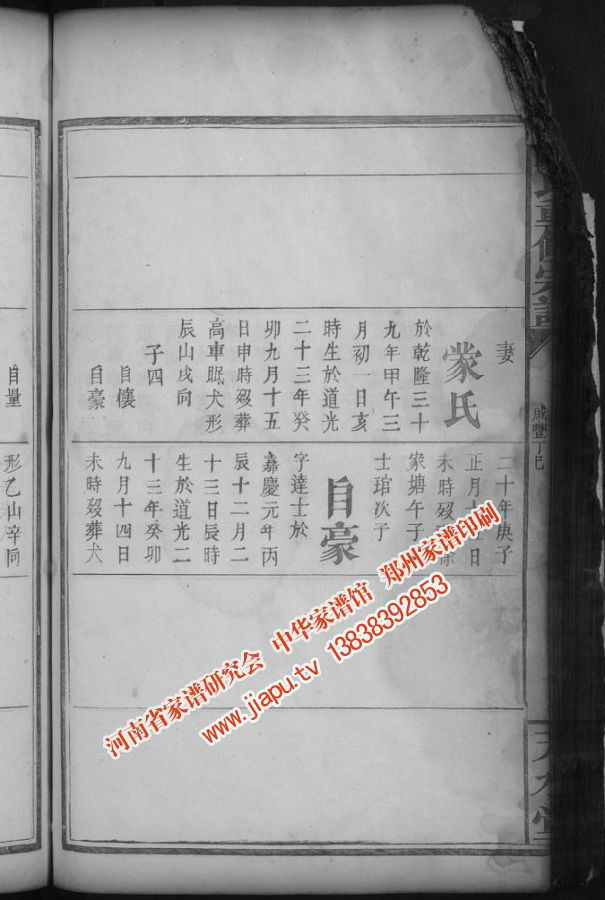 重修宗譜
咸豐丁巳
妻
蒙氏
於乾隆三十
九年甲午三
月初一日亥
時生於道光
二十三年癸
卯九月十五
日申時歿葬
高車眠犬形
辰山戌向
子四
自懷
自豪
二十年庚子
正月 日
未時歿
家塘午子
士琯次子
自豪
字達士於
嘉慶元年丙
辰十二月二
十三日辰時
生於道光二
十三年癸卯
九月十四日
未時歿葬犬
自量
形乙山辛向
河南省家谱研究会 中华家谱馆 郑州家谱印刷
www.jiapu.tv 13838392853